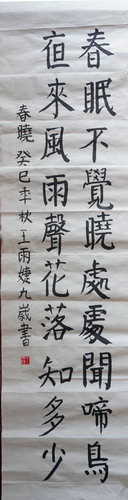 春眠不覺曉處處聞啼鳥
夜來風雨聲花落知多少
春曉 癸巳年秋 王雨婕九歲書